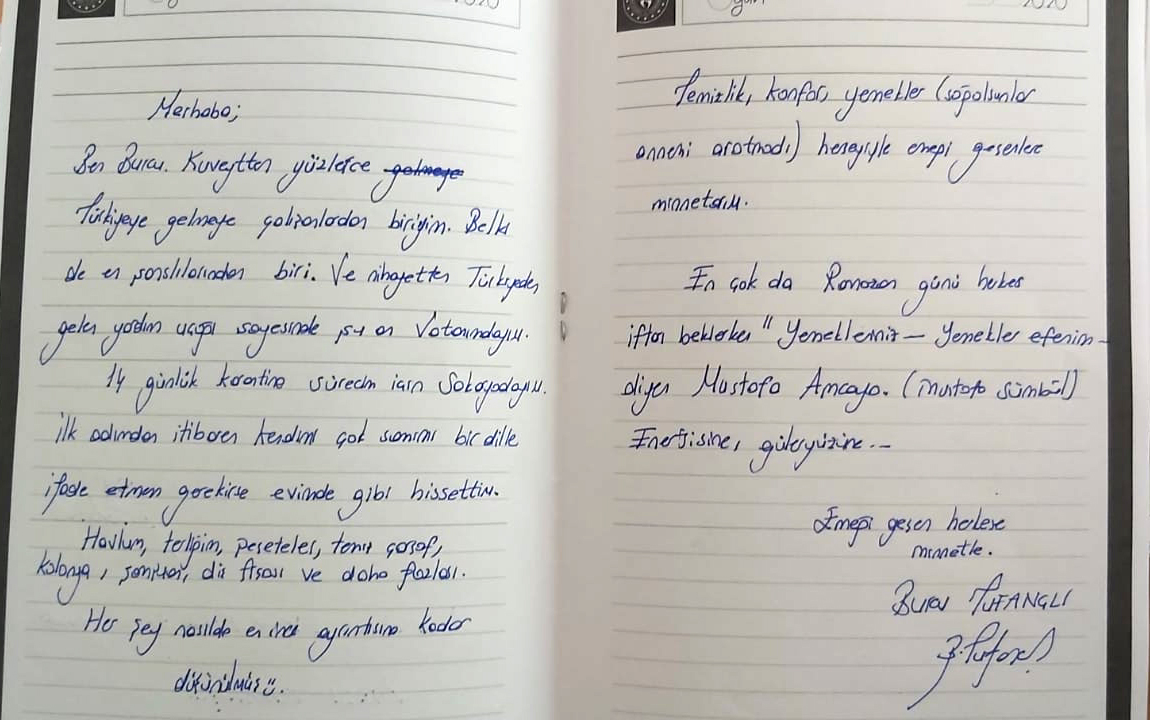 2020
Merhaba;
Ben Burcu. Kuveytten yüzlerce gelmeye
Türkiyeye gelmeye çalışanlardan biriyim. Belki
de en şanslılarından biri. Ve nihayetten Türkiyeden
gelen yardım uçağı sayesinde şu an Vatanımdayım.
14 günlük karantina sürecim için Sakaryadayım.
İlk adımdan itibaren kendimi çok samimi bir dille
ifade etmem gerekirse evimde gibi hissettim.
Havlum, terliğim, peçeteler, temiz çarşaf,
kolonya, şampuan, diş fırçası ve daha fazlası.
Her şey nasılda en ince ayrıntısına kadar
düşünülmüş.
2020
Temizlik, konfor, yemekler (sağolsunlar
annemi aratmadı) herşeyiyle emeği geçenlere
minnettarım.
En çok da Ramazan günü herkes
iftarı beklerken " Yemeklerimiz — Yemekler efenim —
diyen Mustafa Amcaya. (Mustafa Sümbül)
Enerjisine, güleryüzüne...
Emeği geçen herkese
minnetle.
Burcu TUFANGLI
B.Tufan